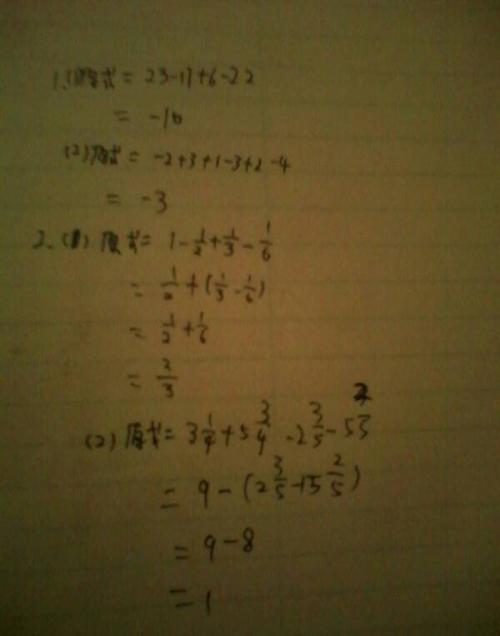 1.(1)原式 = 23-17+6-22
= -10
(2)原式 = -2+3+1-3+2-4
= -3
2.(1) 原式 = 1-1/2+1/3-1/6
= 1/2+(1/3-1/6)
= 1/2+1/6
= 2/3
(2) 原式 = 3 1/4+5 3/4-2 3/5-5
= 9-(2 3/5+5 2/5)
= 9-8
= 1